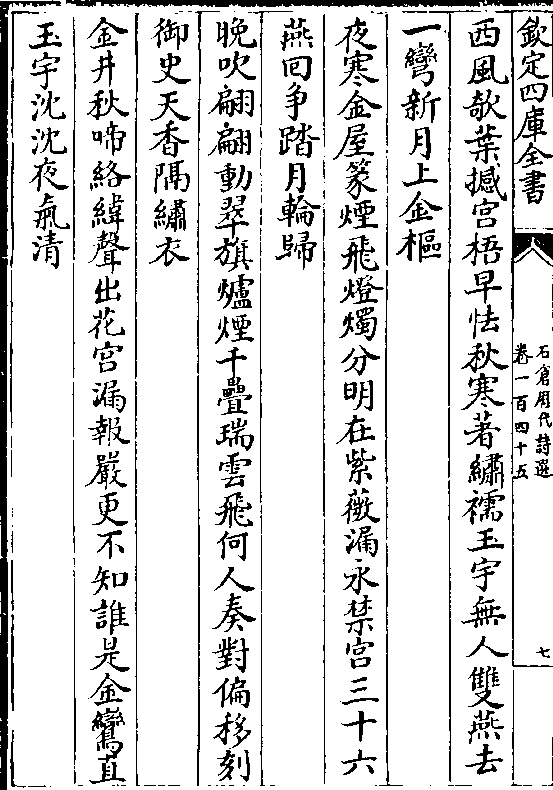 欽定四庫全書
石倉歷代詩選
卷一百四十五
七
西風欹葉撼宫梧早怯秋寒著繡襦玉宇無人雙燕去
一彎新月上金樞
夜寒金屋篆煙飛燈燭分明在紫薇漏永禁宫三十六
燕回争踏月輪歸
晚吹翩翩動翠旗爐煙千疊瑞雲飛何人奏對偏移刻
御史天香隔繡衣
金井秋啼絡緯聲出花宫漏報嚴更不知誰是金鸞直
玉宇沈沈夜氣清